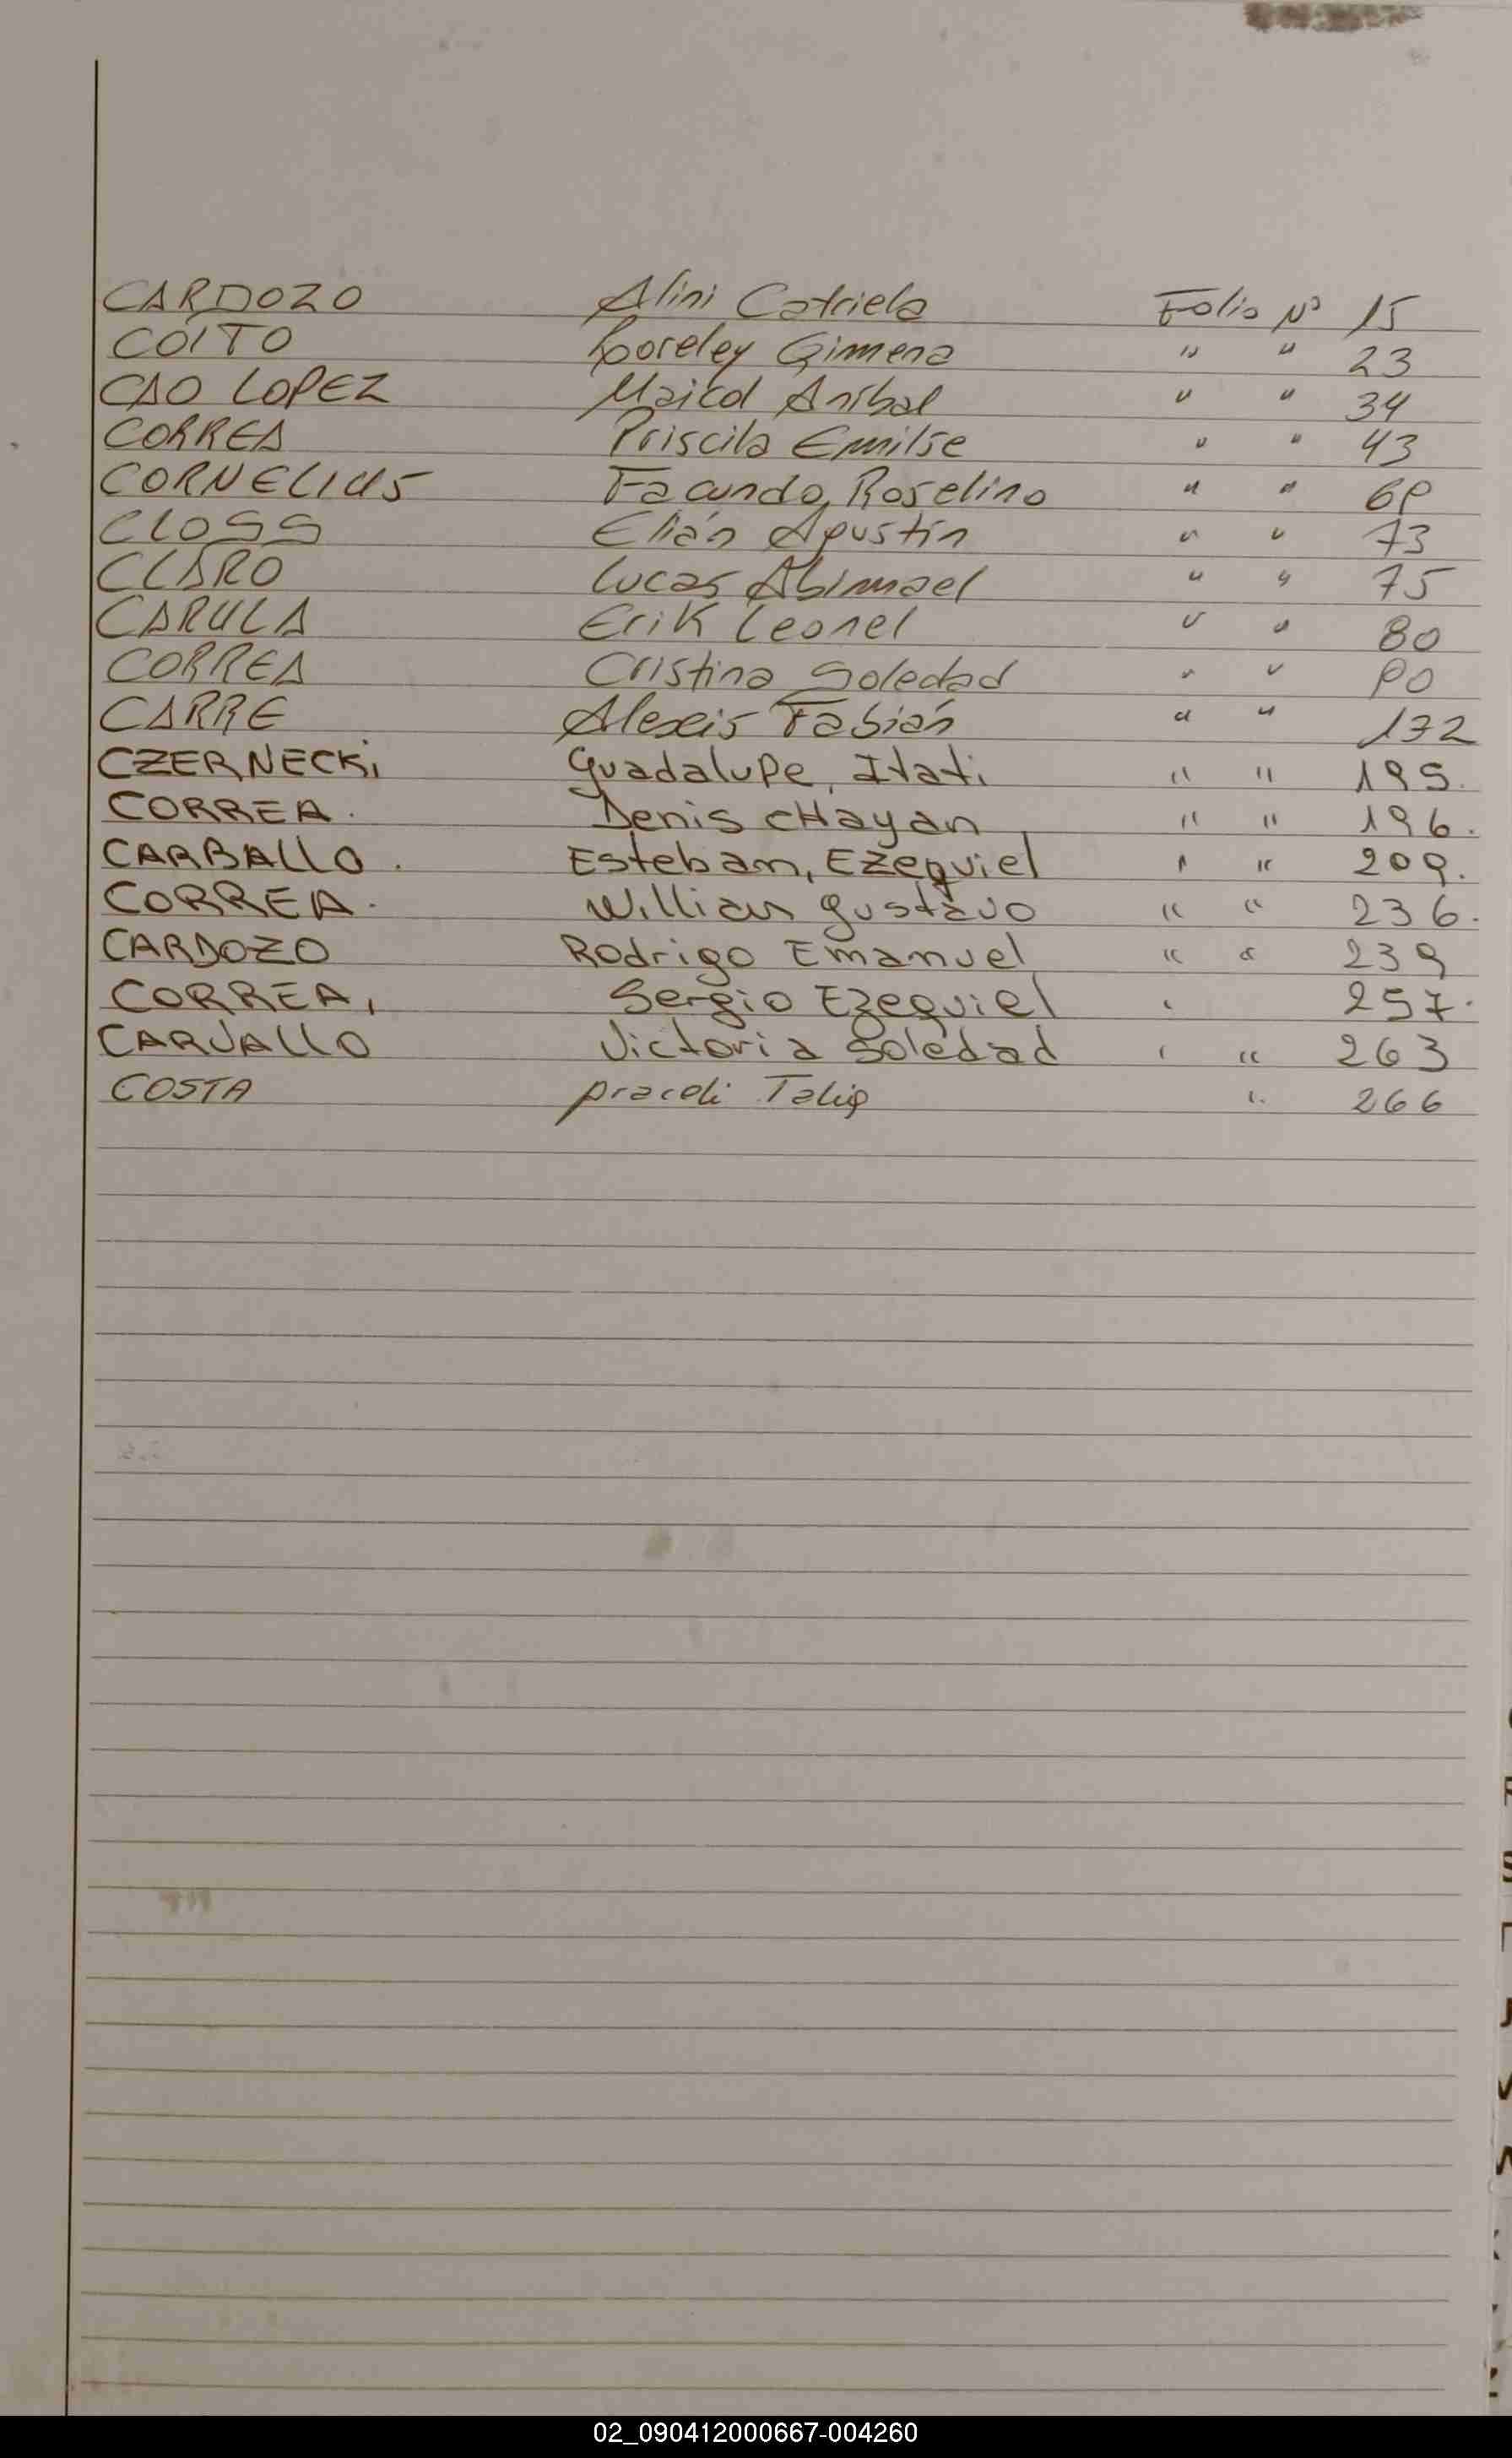 CARDOZO Alini Catriela Folio Nº 15
COITO Loreley Gimena " " 23
CAO LOPEZ Maicol Anibal " " 34
CORREA Priscila Emilse " " 43
CORNELIUS Facundo, Roselino " " 69
CLOSS Elián Agustín " " 73
CLARO Lucas Abimael " " 75
CARULA Erik Leonel " " 80
CORREA Cristina Soledad " " 90
CARRE Alexis Fabián " " 172
CZERNECKi Guadalupe, Itati " " 195.
CORREA. Denis cHayan " " 196.
CARBALLO. Esteban, Ezequiel " " 209.
CORREA. Willian gustavo " " 236.
CARDOZO Rodrigo Emanuel " " 239
CORREA, Sergio Ezequiel " 257.
CARVALLO Victoria Soledad " " 263
COSTA " 266
02_090412000667-004260